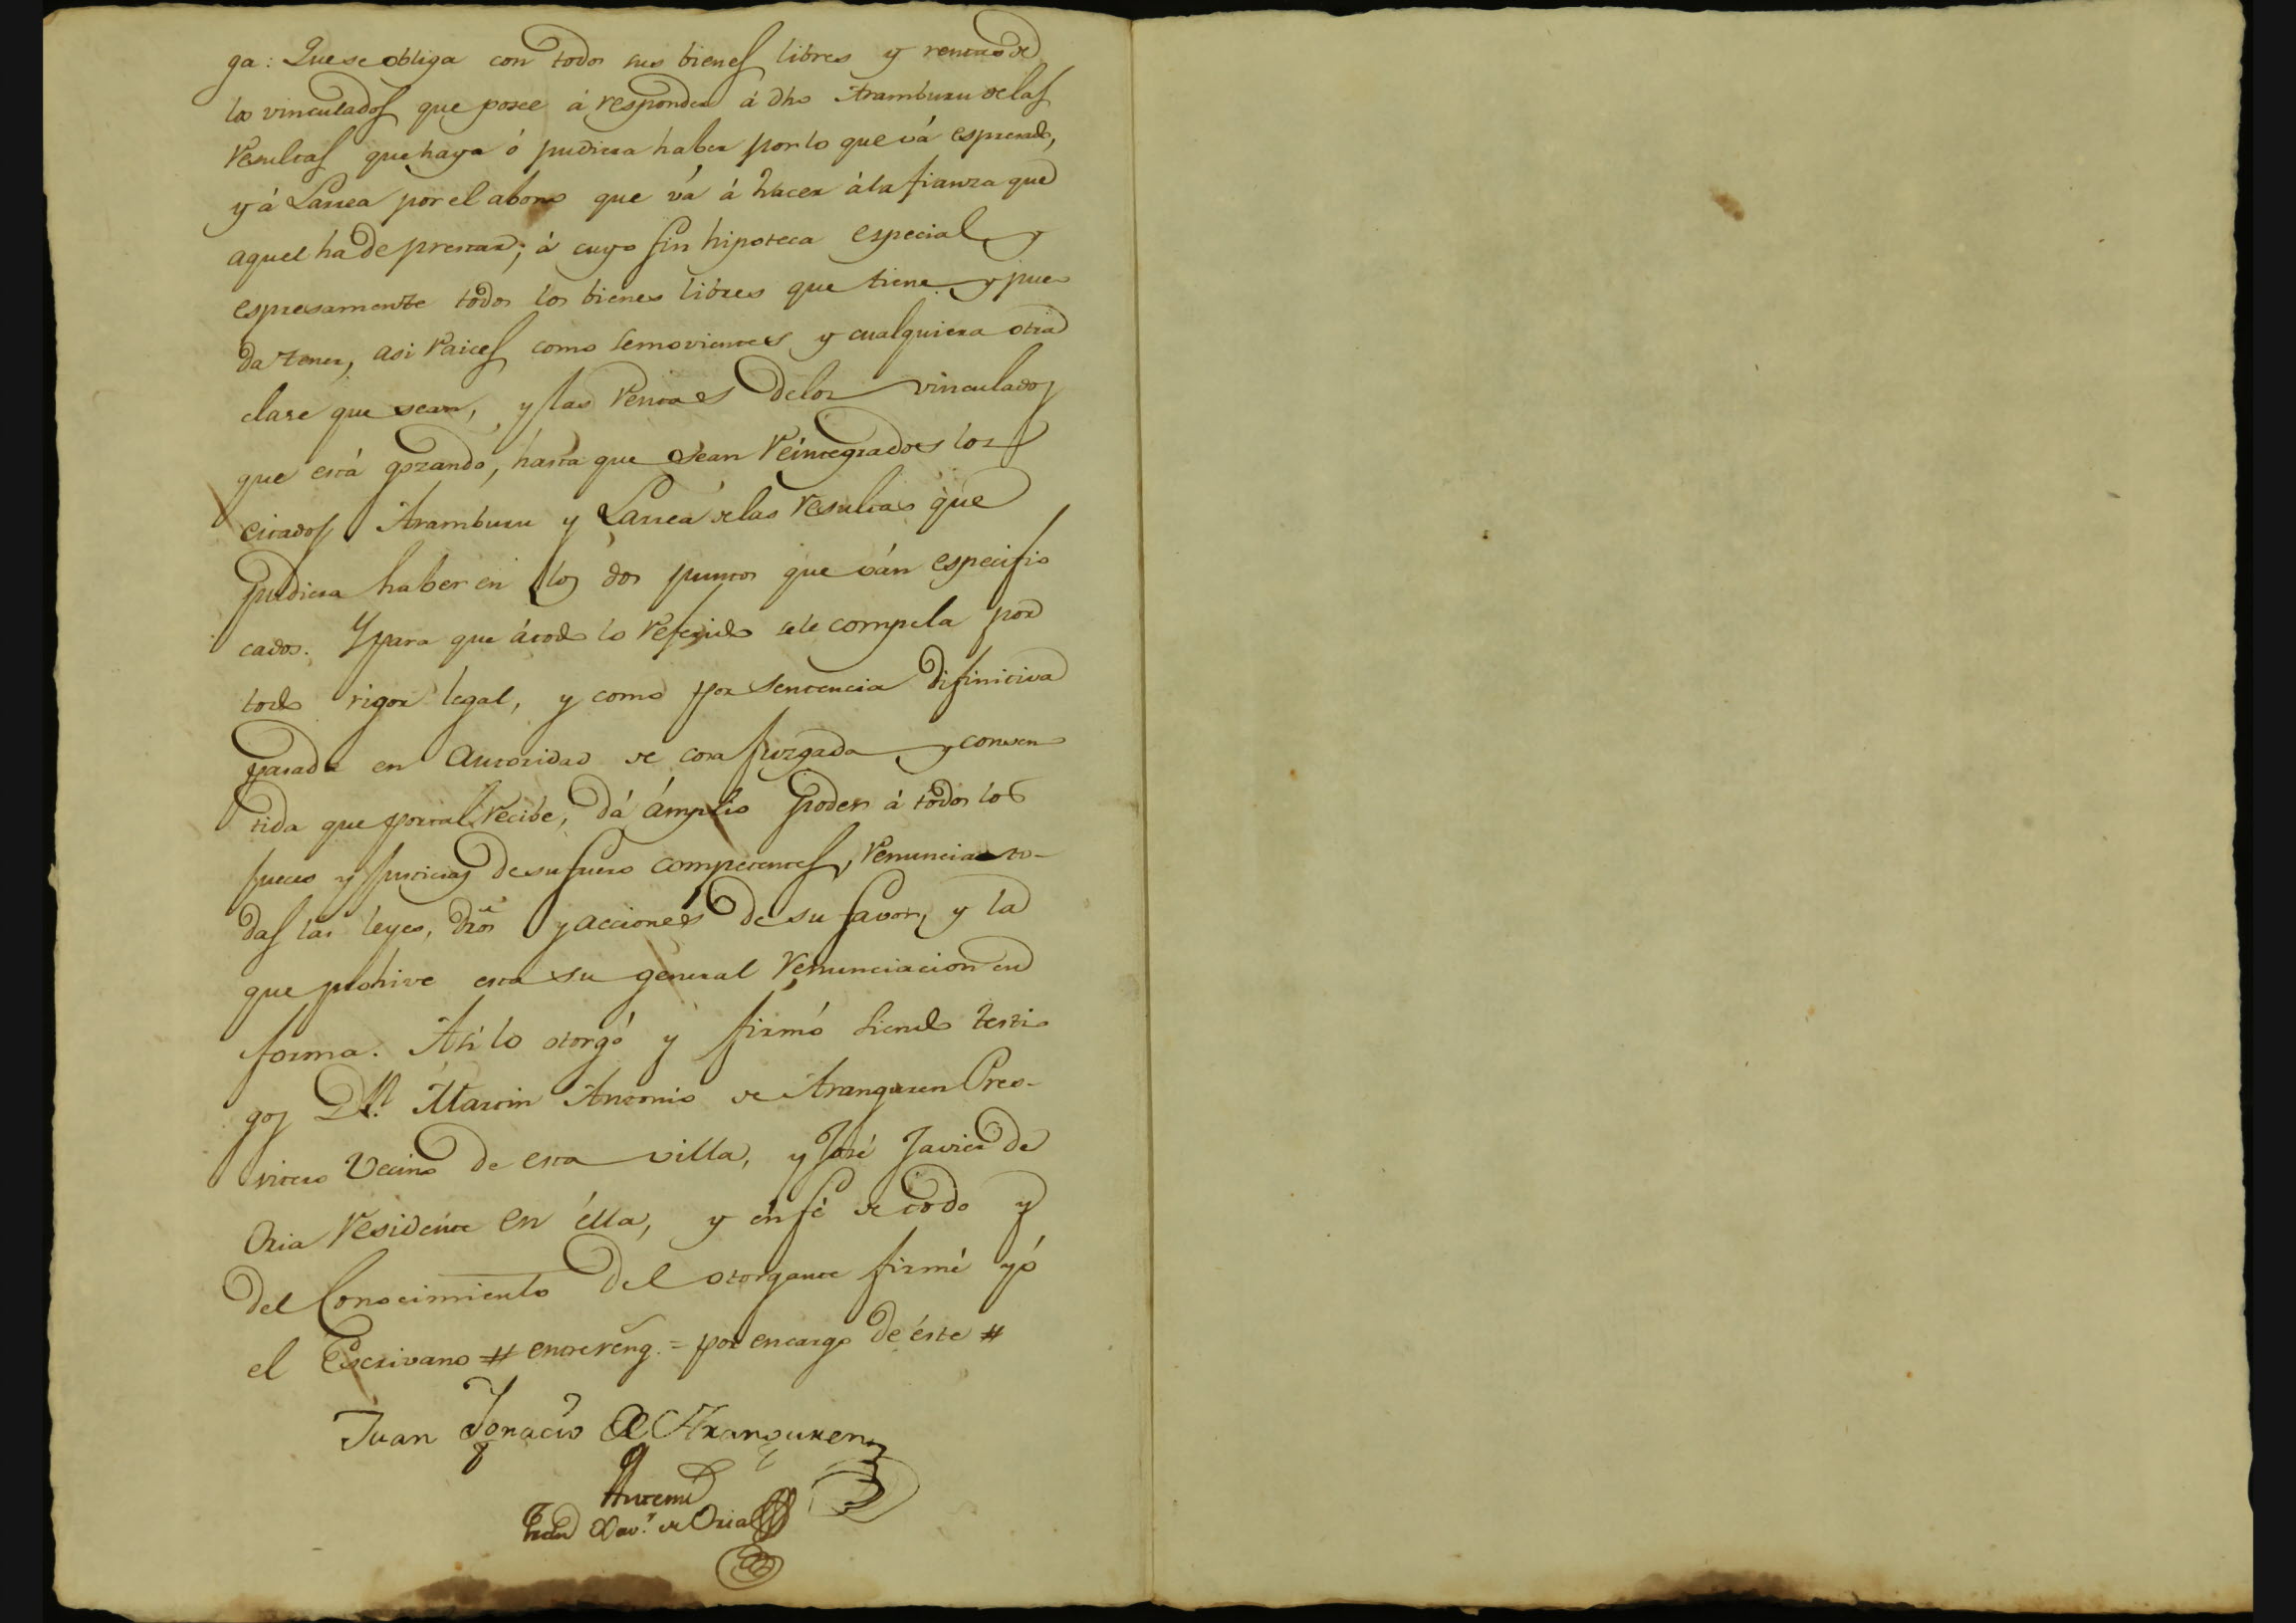 ga: Que se obliga con todos sus bienes libres y rentas de
los vinculados que posee á responder á dho Aramburu de las
resultas que haya ó pudiera haber por lo que vá espresado,
y á Larrea por el abono que vá á hacer á la fianza que
aquel ha de prestar; á cuyo fin hipoteca especial y
espresamente todos los bienes libres que tiene y pue
da tener, asi raices como semovientes y cualquiera otra
clase que sean, y las rentas de los vinculados
que está gozando, hasta que sean reintegrados los
citados Aramburu y Larrea de las resultas que
pudiera haber en los dos puntos que ván especifi
cados. Y para que á todo lo referido se le compela por
todo rigor legal, y como por sentencia difinitiva
pasada en autoridad de cosa juzgada y consen
tida que por tal recibe, dá ámplio poder á todos los
jueces y justicias de su fuero competentes, renuncia to-
das las leyes, dros y acciones de su favor, y la
que prohive esta su general renunciacion en
forma. Asi lo otorgó y firmó siendo testi
gos Dn. Martin Antonio de Aranguren Pres-
vitero vecino de esta villa, y José Javier de
Oria residente en élla, y en fé de todo y
del conocimiento del otorgante firmé yó
el Escrivano # entrereng. = por encargo de éste #
Juan Ygnacio de Aranguren
Antemi
Xav.r de Oria